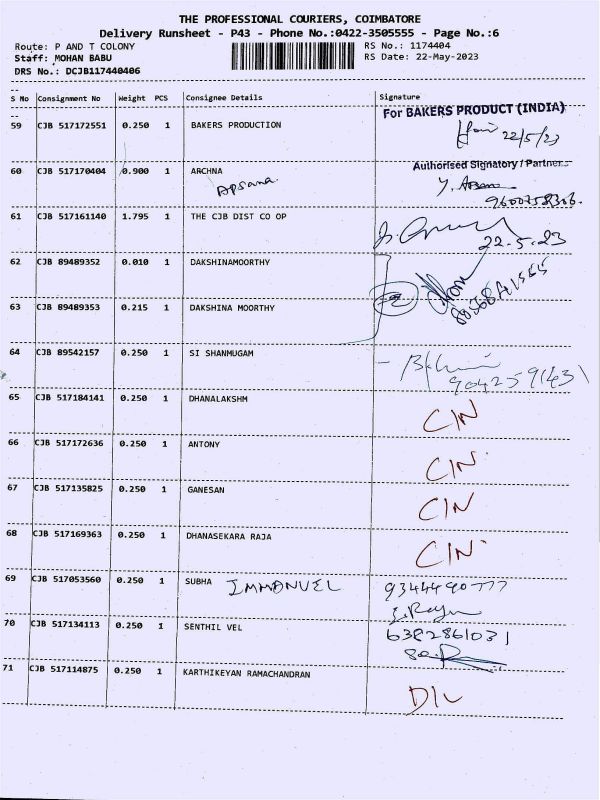 THE PROFESSIONAL COURIERS, COIMBATORE
Delivery Runsheet - P43 - Phone No.:0422-3505555 - Page No.:6
Route: P AND T COLONY RS No.: 1174404
Staff: MOHAN BABU RS Date: 22-May-2023
DRS No.: DCJB117440406
S No Consignment No Weight PCS Consignee Details Signature
For BAKERS PRODUCT (INDIA)
59 CJB 517172551 0.250 1 BAKERS PRODUCTION
22/5/23
Authorised Signatory / Partner
60 CJB 517170404 0.900 1 ARCHNA
Apsana
61 CJB 517161140 1.795 1 THE CJB DIST CO OP
22-5-23
62 CJB 89489352 0.010 1 DAKSHINAMOORTHY
63 CJB 89489353 0.215 1 DAKSHINA MOORTHY
64 CJB 89542157 0.250 1 SI SHANMUGAM
9042591431
65 CJB 517184141 0.250 1 DHANALAKSHM CIN
66 CJB 517172636 0.250 1 ANTONY CIN
67 CJB 517135825 0.250 1 GANESAN CIN
68 CJB 517169363 0.250 1 DHANASEKARA RAJA CIN
69 CJB 517053560 0.250 1 SUBHA IMMANUEL 9344490777
70 CJB 517134113 0.250 1 SENTHIL VEL 6382861031
71 CJB 517114875 0.250 1 KARTHIKEYAN RAMACHANDRAN
D/L